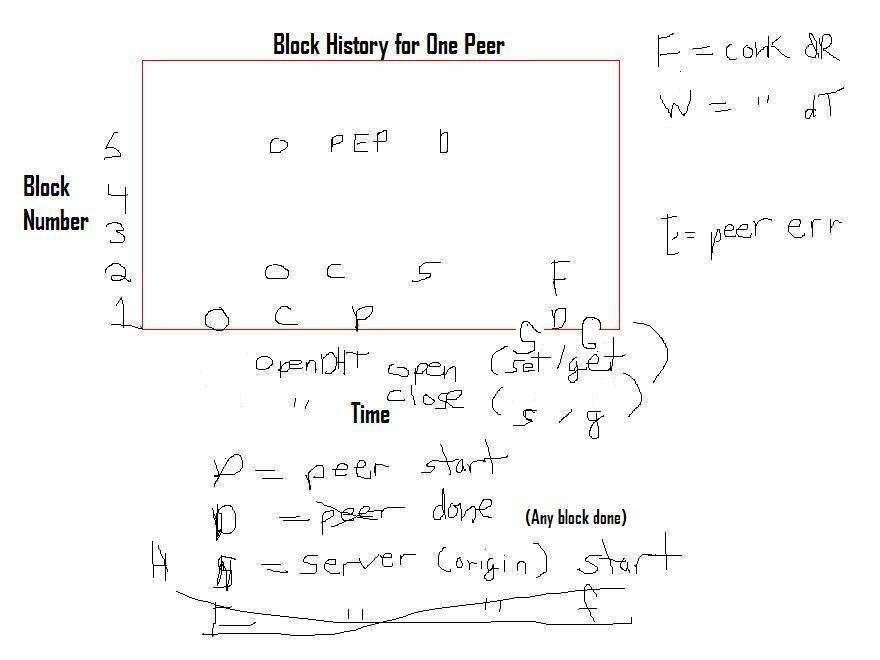 Block History for One Peer
F = conk dR
W = " dT
5 O PEP D
Block
Number
4
3
E = peer err
2 O C S F
1 O C P D
S G
OpenDHT open (set/get)
" close (s/g)
Time
P = peer start
D = peer done (Any block done)
H = server (origin) start
" " f